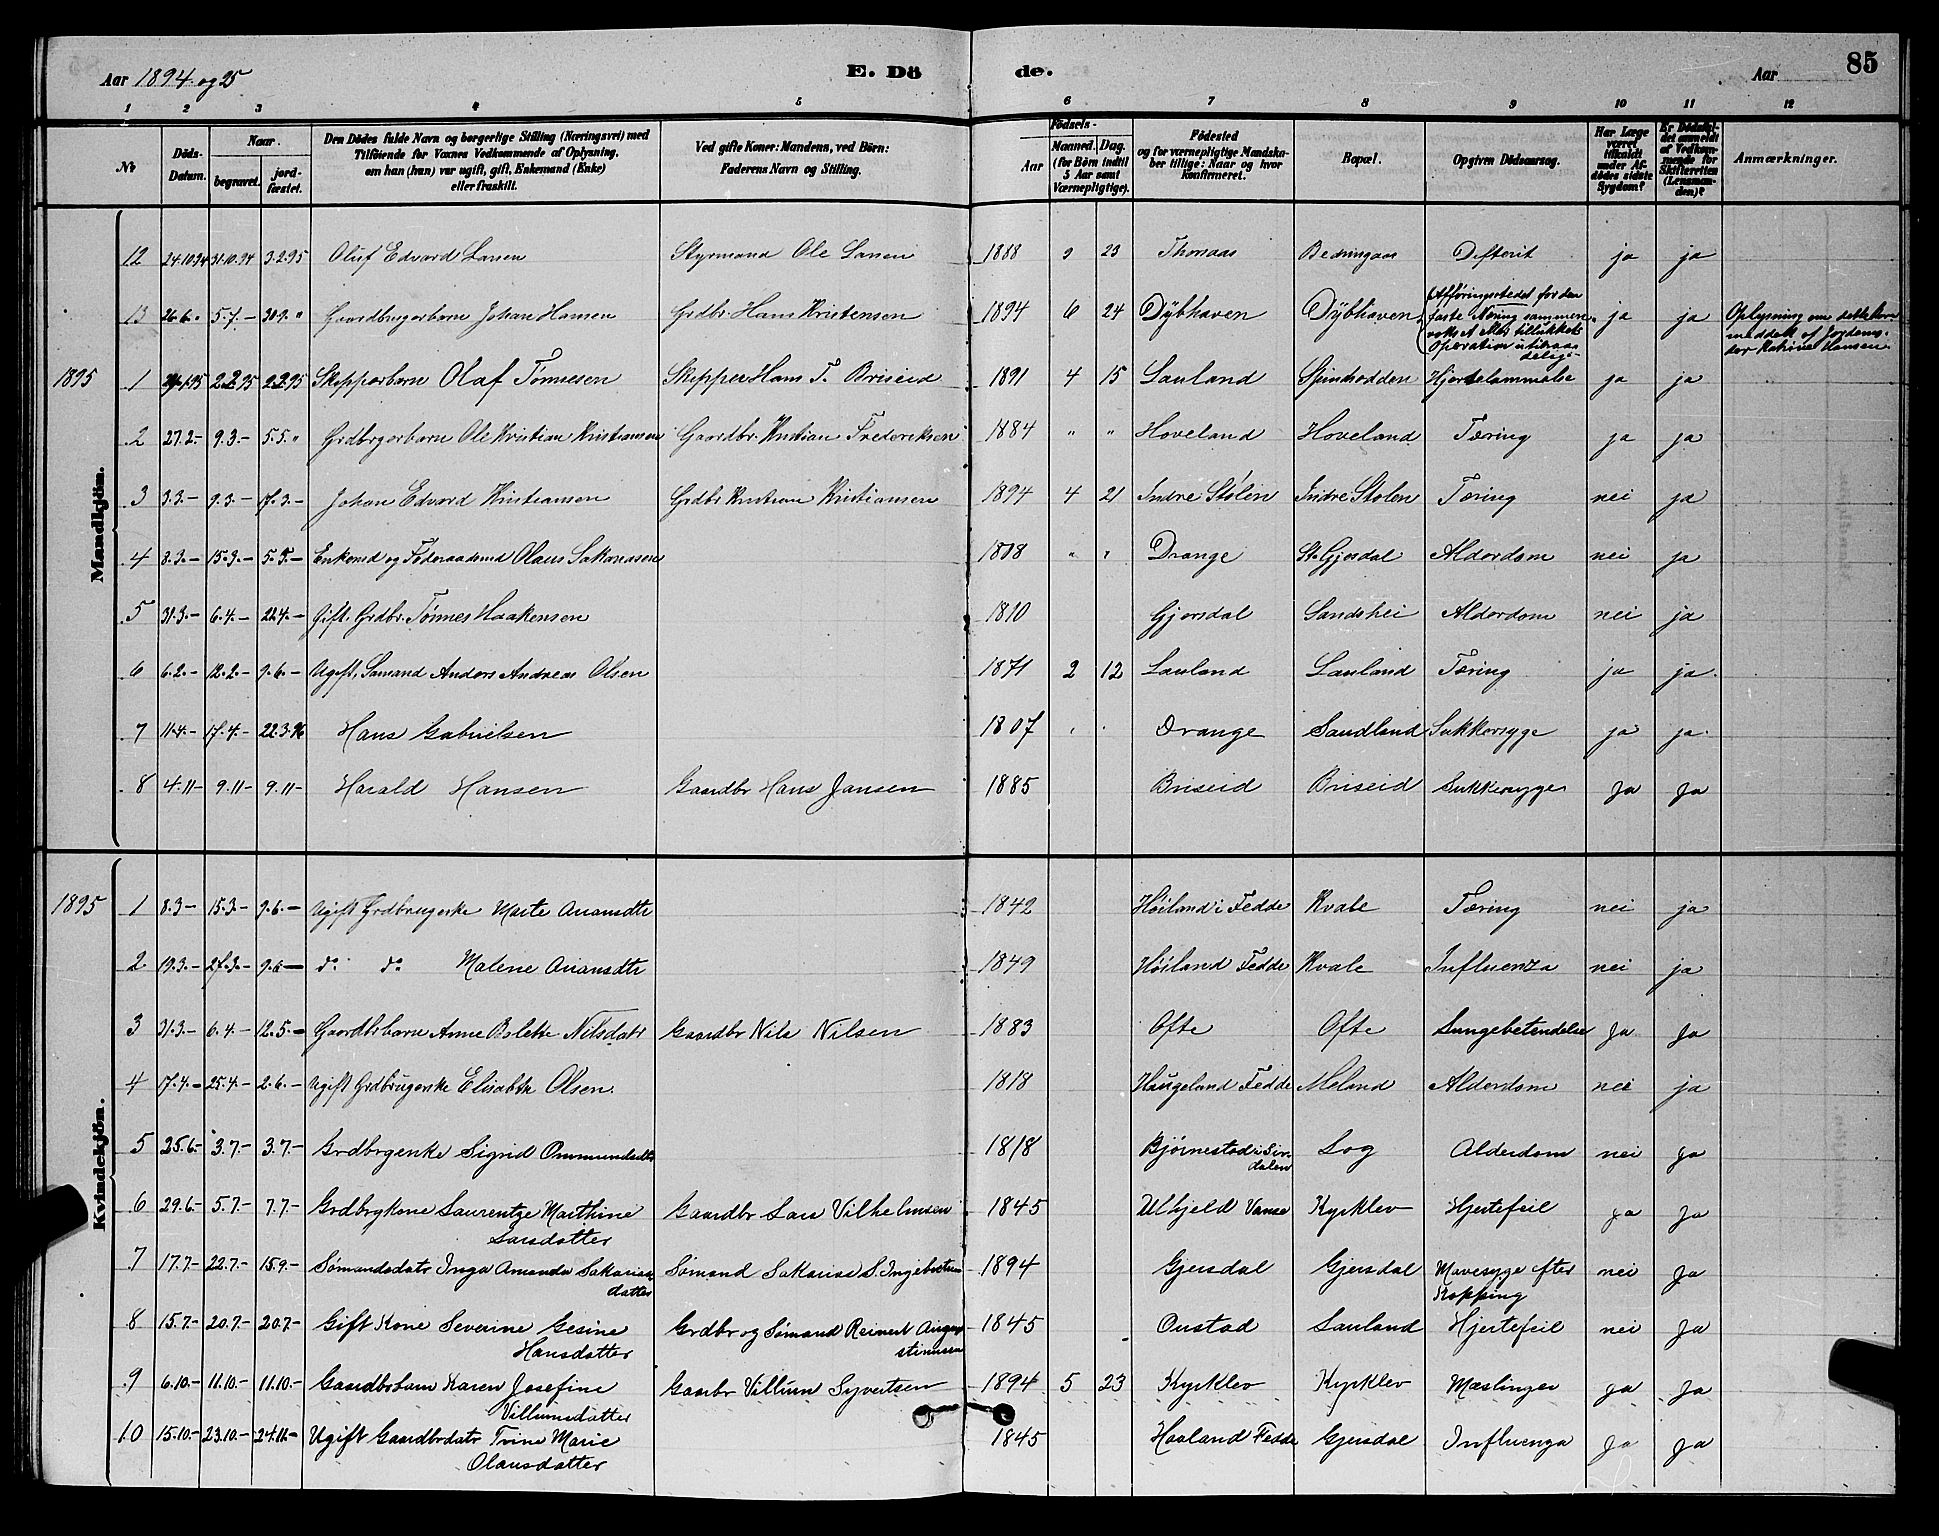 Aar 1894 og 95 E. Döde. Aar 85
1 2 3 4 5 6 7 8 9 10 11 12
No
Döds-Datum.
Naar
begravet.
jordfæstet.
Den Dödes fulde Navn og borgerlige Stilling (Næringsvei) med
Tilföiende for Voxnes Vedkommende af Oplysning,
om han (hun) var ugift, gift, Enkemand (Enke)
eller fraskilt.
Ved gifte Koner: Mandens, ved Börn:
Faderens Navn og Stilling.
Födsels-
Aar
Maaned. Dag.
(for Börn indtil
5 Aar samt
Værnepligtige).
Födested
og for værnepligtige Mandska-
ber tillige: Naar og hvor
konfirmeret.
Bopæl.
Opgiven Dödsaarsag.
Har Læge
været
tilkaldt
under Af-
dödes sidste
Sygdom?
Er Dödsfal-
det anmeldt
af Vedkom-
mende for
Skifteretten
(Lensman-
den)?
Anmærkninger.
Mandkjön.
12 24.10.94 31.10.94 3.2.95 Oluf Edvard Larsen Styrmand Ole Larsen 1888 9 23 Thomaas Bedringaas Difterit ja ja
13 26.6. 5.7.- 30.9. " Gaardbrugerbarn Johan Hansen Grdbr. Hans Kristensen 1894 6 24 Dybhaven Dybhaven ja ja
1895 1 2.2.95 2.2.95 Skipperbarn Olaf Tønnesen Skipper Hans T. Briseid 1891 4 15 Lauland Spindsodden Hjertelammelse ja ja
2 27.2.- 9.3.- 5.5. " Grdbrgerbarn Ole Kristian Kristiansen Gaardbr. Kristian Frederiksen 1884 " " Hoveland Hoveland Tæring ja ja
3 3.3.- 9.3.- 17.3.- Johan Edvard Kristiansen Grdbr Kristian Kristiansen 1894 4 21 Indre Stølen Indre Stølen Tæring nei ja
4 8.3.- 15.3.- 5.5.- Enkemd og Føderaadsmd Olaus Sakariassen 1818 " " Drange St. Gjersdal Alderdom nei ja
5 31.3.- 6.4.- 22.4.- Gift. Grdbr. Tønnes Haakensen 1810 Gjersdal Sandshei Alderdom nei ja
6 6.2.- 12.2.- 9.6.- Ugift, Sømand Anders Andreas Olsen 1871 2 12 Lauland Lauland Tæring ja ja
7 11.4.- 17.4.- 22.3.96 Hans Gabrielsen 1807 Drange Sandland Sukkersyge ja ja
8 4.11- 9.11- 9.11- Harald Hansen Gaardbr Hans Jansen 1885 Briseid Briseid Sukkersyge Ja Ja
Kvindekjön.
1895 1 8.3- 15.3- 9.6.- Ugift Grdbrugerske Marte Anansdtr 1842 Høiland i Fedde Kvale Tæring nei ja
2 19.3.- 27.3.- 9.6.- do. do. Malene Anansdtr 1849 Høiland Fedde Kvale Influenza nei ja
3 31.3.- 6.4.- 12.5.- Gaardbrbarn Anne Bolette Nilsdatr Gaardbr Nils Nilsen 1883 Ofte Ofte Lungebetendelse Ja Ja
4 17.4.- 25.4.- 2.6.- Ugift Grdbrugerske Elisabth Olsen. 1818 Haugeland Fedde Meland Alderdom nei ja
5 25.6- 3.7.- 3.7.- Grdbrgenke Sigrid Ommundsdtr 1818 Bjørnestad i Sir-
dalen Log Alderdom nei ja
6 29.6.- 5.7.- 7.7.- Grdbrgkone Laurentze Marthine
Larsdatter Gaardbr Lars Vilhelmsen 1845 Ulhjeld Vanse Kyrklev Hjertefeil ja Ja
7 17.7- 22.7.- 15.9.- Sømandsdatr Inga Amanda Sakarias-
datter Sømand Sakarias S. Ingebretsen 1894 Gjersdal Gjersdal Mavesyge efter
Kopping nei Ja
8 15.7- 20.7.- 20.7- Gift Kone Severine Gesine
Hansdatter Grdbr og Sømand Reinert Augu-
stinussen 1845 Onstad Lauland Hjertefeil nei Ja
9 6.10.- 11.10.- 11.10.- Gaardbrbarn Karen Josefine
Villumsdatter Gaarbr Villum Syvertsen 1894 5 23 Kyrklev Kyrklev Mæslinger ja Ja
10 15.10.- 23.10.- 24.11.- Ugift Gaardbrdatr Trine Marie
Olausdatter 1845 Haaland Fedde Gjersdal Influenza Ja Ja